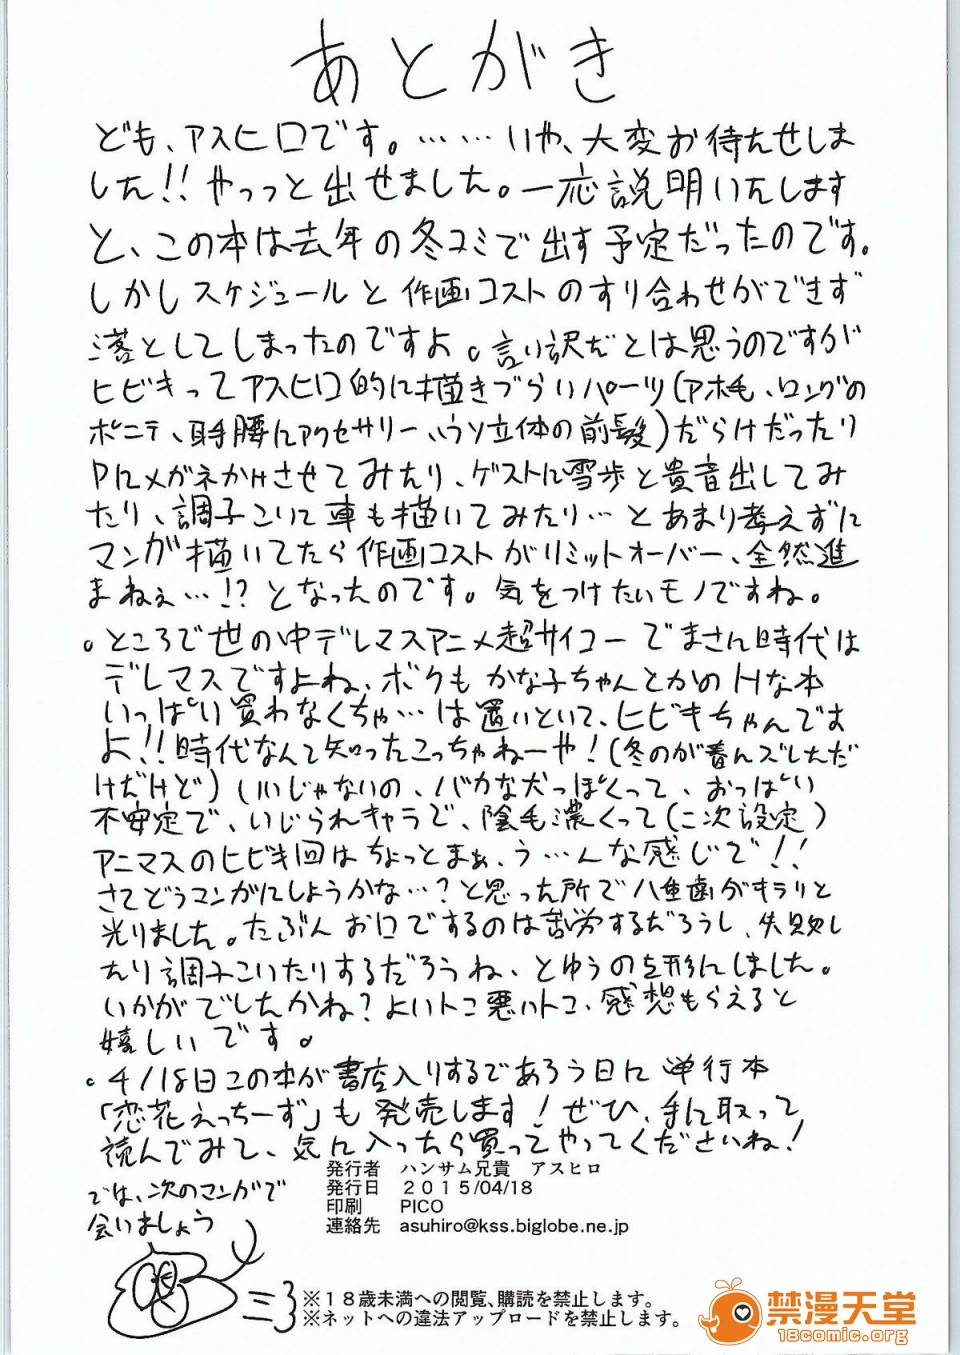 あとがき
ども、アスヒロです。……いや、大変お待たせしま
した!!やっっと出せました。一応説明いたします
と、この本は去年の冬コミで出す予定だったのです。
しかしスケジュールと作画コストのすり合わせができず
落としてしまったのですよ。言い訳だとは思うのですが
ヒビキってアスヒロ的に描きづらいパーツ(アホ毛、ロングの
ポニテ、耳手腰にアクセサリー、ウソ立体の前髪)だらけだったり
Pにメガネかけさせてみたり、ゲストに雪歩と貴音出してみ
たり、調子こいて車も描いてみたり…とあまり考えずに
マンガ描いてたら作画コストがリミットオーバー、全然進
まねぇ…!?となったのです。気をつけたいモノですね。
。ところで世の中デレマスアニメ超サイコーでまさに時代は
デレマスですよね、
は置いといて、ヒビキちゃんです
よ!!時代なんて知ったこっちゃねーや!(冬のが春んズレしただ
けだけど)
アニマスのヒビキ回はちょっとまぁ、う…んな感じで!!
さてどうマンガにしようかな…?と思った所で八重歯がキラリと
光りました。
いかがでしたかね?よいトコ悪いトコ、感想もらえると
嬉しいです。
。4/18日この本が書店入りするであろう日に単行本
「恋花えっちーず」も発売します!ぜひ、手に取って
読んでみて、気に入ったら買ってやってくださいね!
では、次のマンガで
会いましょう
発行者 ハンサム兄貴 アスヒロ
発行日 2015/04/18
印刷 PICO
連絡先 asuhiro@kss.biglobe.ne.jp
※18歳未満への閲覧、購読を禁止します。
※ネットへの違法アップロードを禁止します。
禁漫天堂
18comic.org